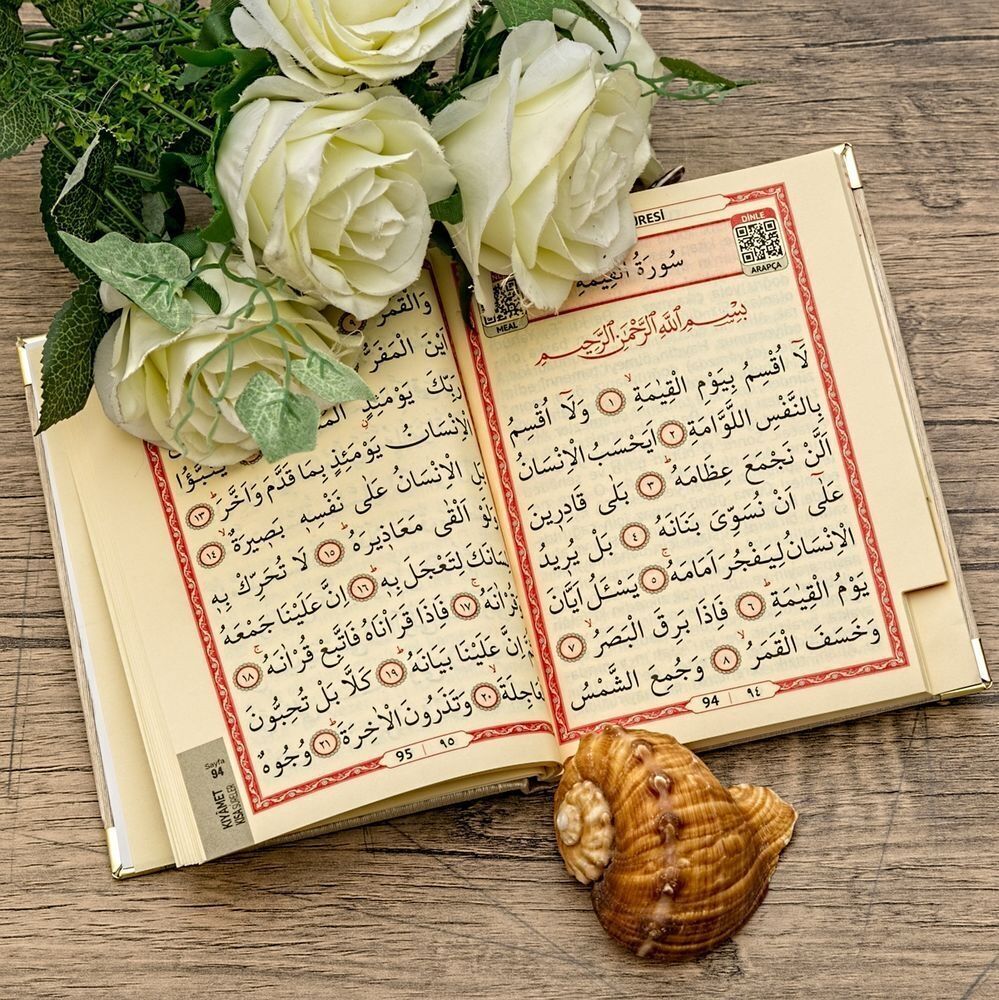 SURESİ
DİNLE
سورة القيمة
ARAPÇA
MEAL
بِسْمِ اللهِ الرَّحْمٰنِ الرَّحِيمِ
لَٓا اُقْسِمُ بِيَوْمِ الْقِيٰمَةِۙ ﴿١﴾ وَلَٓا اُقْسِمُ
بِالنَّفْسِ اللَّوَّامَةِ ﴿٢﴾ اَيَحْسَبُ الْاِنْسَانُ
اَلَّنْ نَجْمَعَ عِظَامَهُۜ ﴿٣﴾ بَلٰى قَادِرِينَ
عَلٰٓى اَنْ نُسَوِّىَ بَنَانَهُ ﴿٤﴾ بَلْ يُرِيدُ
الْاِنْسَانُ لِيَفْجُرَ اَمَامَهُۚ ﴿٥﴾ يَسْـَٔلُ اَيَّانَ
يَوْمُ الْقِيٰمَةِۜ ﴿٦﴾ فَاِذَا بَرِقَ الْبَصَرُۙ ﴿٧﴾
وَخَسَفَ الْقَمَرُۙ ﴿٨﴾ وَجُمِعَ الشَّمْسُ
94 | ٩٤
وَالْقَمَرُ
اَيْنَ الْمَفَرُّ
رَبِّكَ يَوْمَئِذٍ
الْاِنْسَانُ يَوْمَئِذٍ بِمَا قَدَّمَ وَاَخَّرَۜ ﴿١٣﴾
بَلِ الْاِنْسَانُ عَلٰى نَفْسِهِ بَصِيرَةٌۙ ﴿١٤﴾
وَلَوْ اَلْقٰى مَعَاذِيرَهُۜ ﴿١٥﴾ لَا تُحَرِّكْ بِهِ
لِسَانَكَ لِتَعْجَلَ بِهِۜ ﴿١٦﴾ اِنَّ عَلَيْنَا جَمْعَهُ
وَقُرْاٰنَهُۚ ﴿١٧﴾ فَاِذَا قَرَاْنَاهُ فَاتَّبِعْ قُرْاٰنَهُۚ ﴿١٨﴾
ثُمَّ اِنَّ عَلَيْنَا بَيَانَهُۜ ﴿١٩﴾ كَلَّا بَلْ تُحِبُّونَ
الْعَاجِلَةَۙ ﴿٢٠﴾ وَتَذَرُونَ الْاٰخِرَةَۜ ﴿٢١﴾ وُجُوهٌ
95 | ٩٥
Sayfa
94
KIYAMET
KISA SURELER